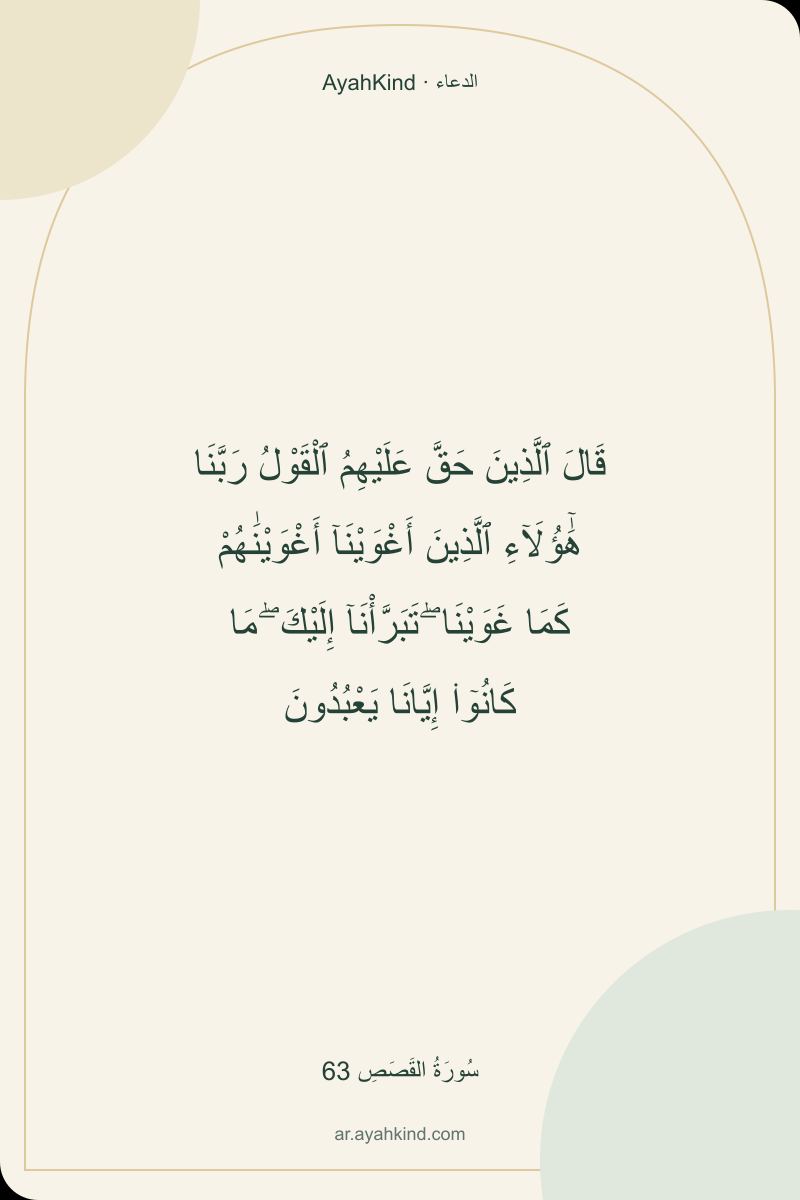 AyahKind · الدعاء
قَالَ ٱلَّذِينَ حَقَّ عَلَيْهِمُ ٱلْقَوْلُ رَبَّنَا
هَٰٓؤُلَآءِ ٱلَّذِينَ أَغْوَيْنَآ أَغْوَيْنَٰهُمْ
كَمَا غَوَيْنَا ۖ تَبَرَّأْنَآ إِلَيْكَ ۖ مَا
كَانُوٓا۟ إِيَّانَا يَعْبُدُونَ
سُورَةُ القَصَصِ 63
ar.ayahkind.com